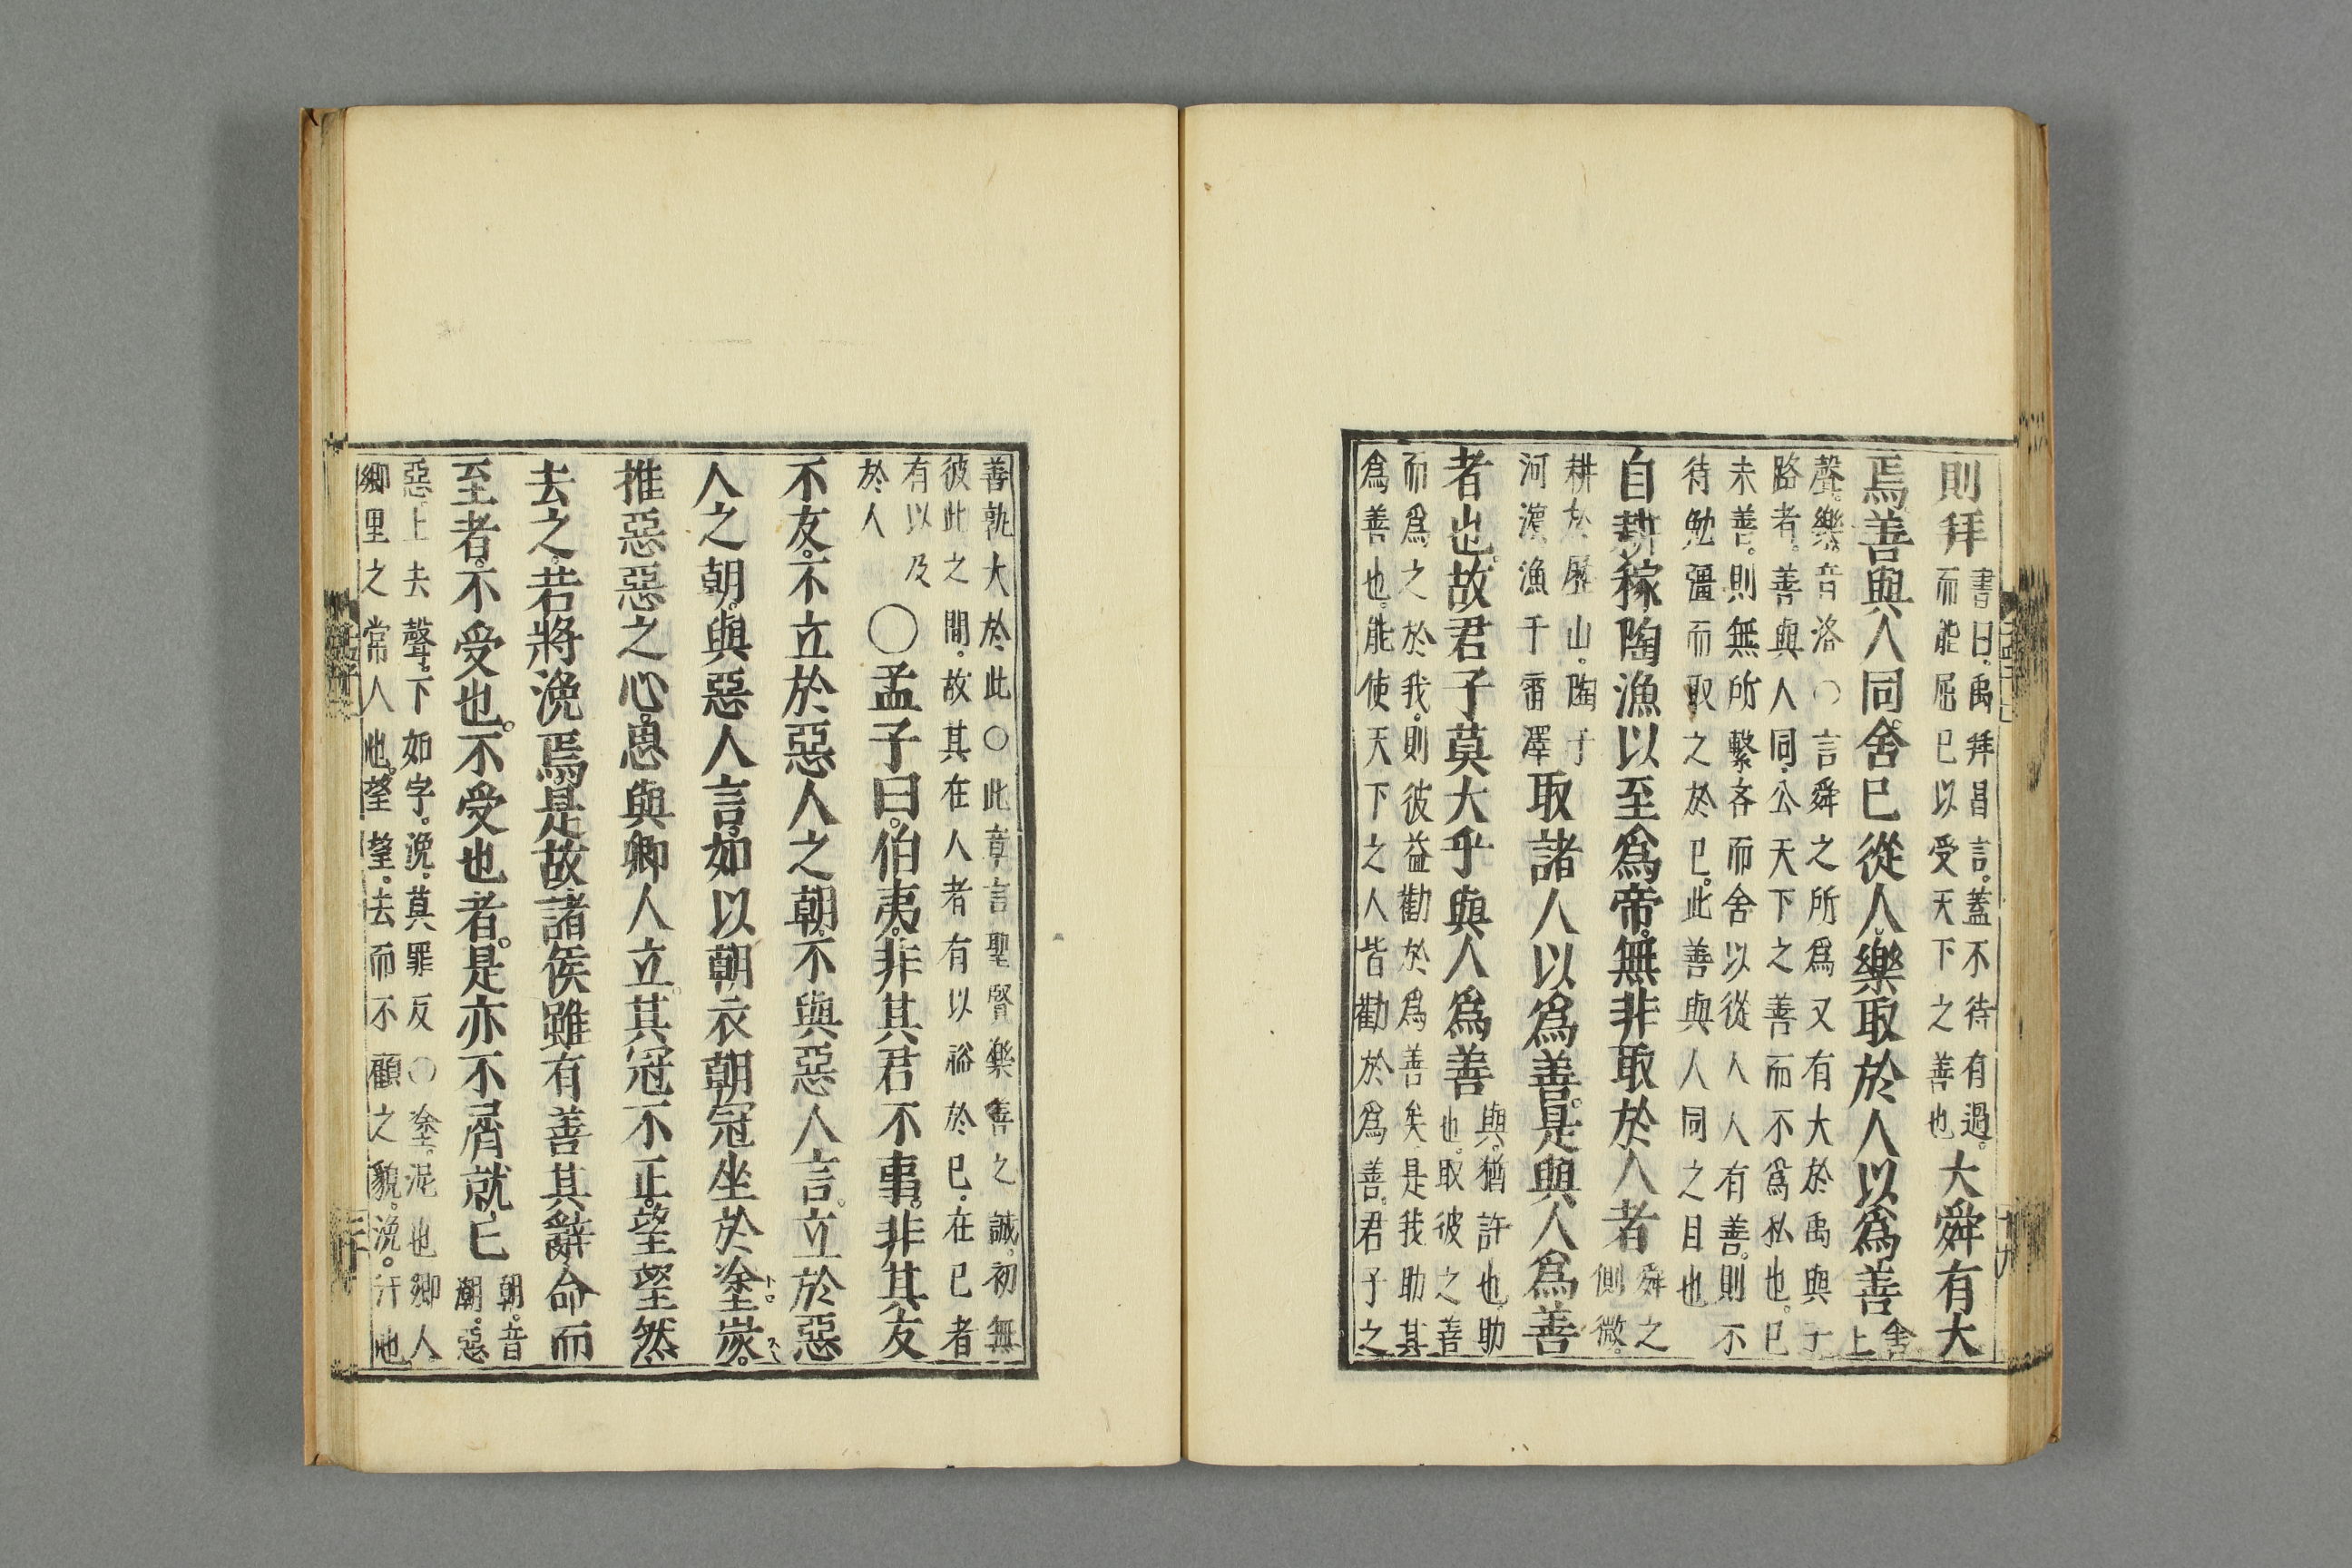 則拜書曰。禹拜昌言。蓋不待有過。而能屈已以受天下之善也大舜有大
焉善與人同舍已從人。樂取於人以爲善舍上
聲。樂。音洛○言舜之所爲又有大於禹與子
路者。善與人同公天下之善而不爲私也。已
未善。則無所繫吝而舍以從人人有善。則不
待勉彊而取之於已。此善與人同之目也
自耕稼陶漁以至爲帝。無非取於人者舜之側微。
耕於歷山。陶于河濱漁于雷澤取諸人以爲善。是與人爲善
者也。故君子莫大乎與人爲善與。猶許也助也。取彼之善
而爲之於我。則彼益勸於爲善矣是我助其
爲善也。能使天下之人皆勸於爲善。君子之
善孰大於此○此章言聖賢樂善之誠。初無
彼此之間。故其在人者有以裕於已。在已者
有以及於人○孟子曰。伯夷。非其君不事。非其友
不友。不立於惡人之朝。不與惡人言。立於惡
人之朝。與惡人言。如以朝衣朝冠坐於塗炭。
推惡惡之心。思與鄉人立。其冠不正。望望然
去之。若將浼焉。是故諸侯雖有善其辭命而
至者。不受也。不受也者。是亦不屑就已朝。音潮。惡
惡上去聲。下如字。浼。莫罪反○塗。泥也鄉人
鄉里之常人也。望望。去而不顧之貌。浼。汙也
孟子
二十